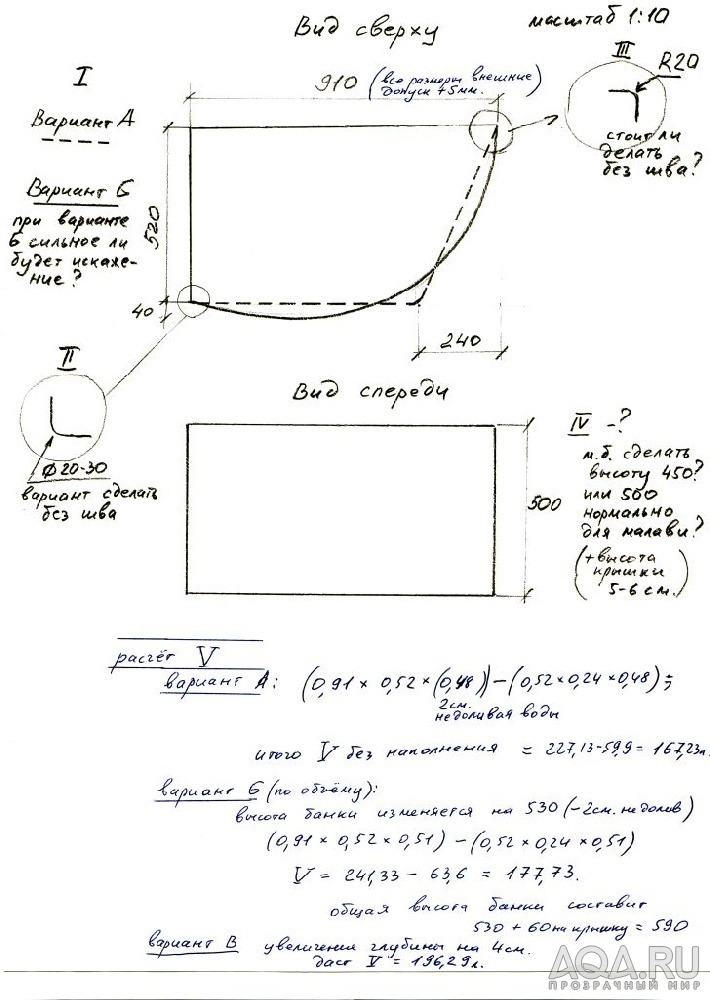 Вид сверху
масштаб 1:10
I
Вариант А
Вариант Б
при варианте
Б сильное ли
будет искаже-
ние?
910 (все размеры внешние)
допуск +5мм.
III
R20
стоит ли
делать
без шва?
520
40
240
II
Ø 20-30
вариант сделать
без шва
Вид спереди
500
IV -?
м.б. сделать
высоту 450?
или 500
нормально
для малави?
(+высота
крышки
5-6 см.)
расчёт V
вариант А: (0,91 × 0,52 × (0,48)) - (0,52 × 0,24 × 0,48) =
2см.
недоливая воды
итого V без наполнения = 227,13-59,9 = 167,23л.
вариант Б (по объёму):
высота банки изменяется на 530 (-2см. недолив)
(0,91 × 0,52 × 0,51) - (0,52 × 0,24 × 0,51)
V = 241,33 - 63,6 = 177,73.
общая высота банки составит
530 + 60 на крышку = 590
вариант В увеличения глубины на 4см.
даст V = 196,29л.
AQA.RU
ПРОЗРАЧНЫЙ МИР